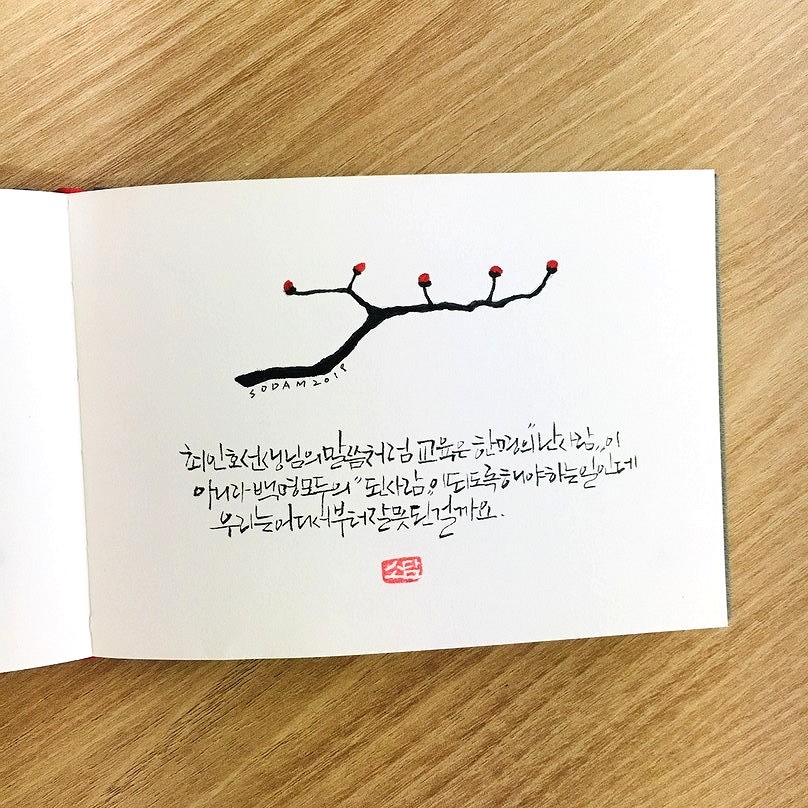 SODAM 2019
최인호선생님의말씀처럼 교육은 한명의 "난사람"이
아니라 백명모두의 "된사람"이 되도록해야하는일인데
우리는어디서부터잘못된걸까요.
소담